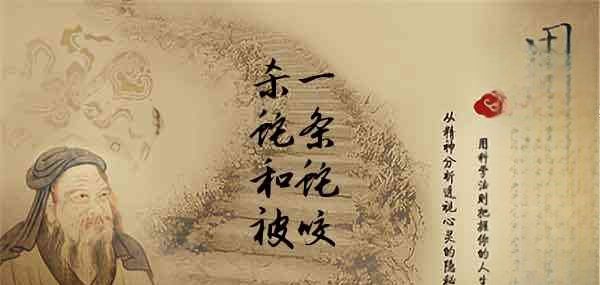 杀蛇和被
一条蛇咬
用科学法则把握你的人生
从精神分析透视心灵的隐秘